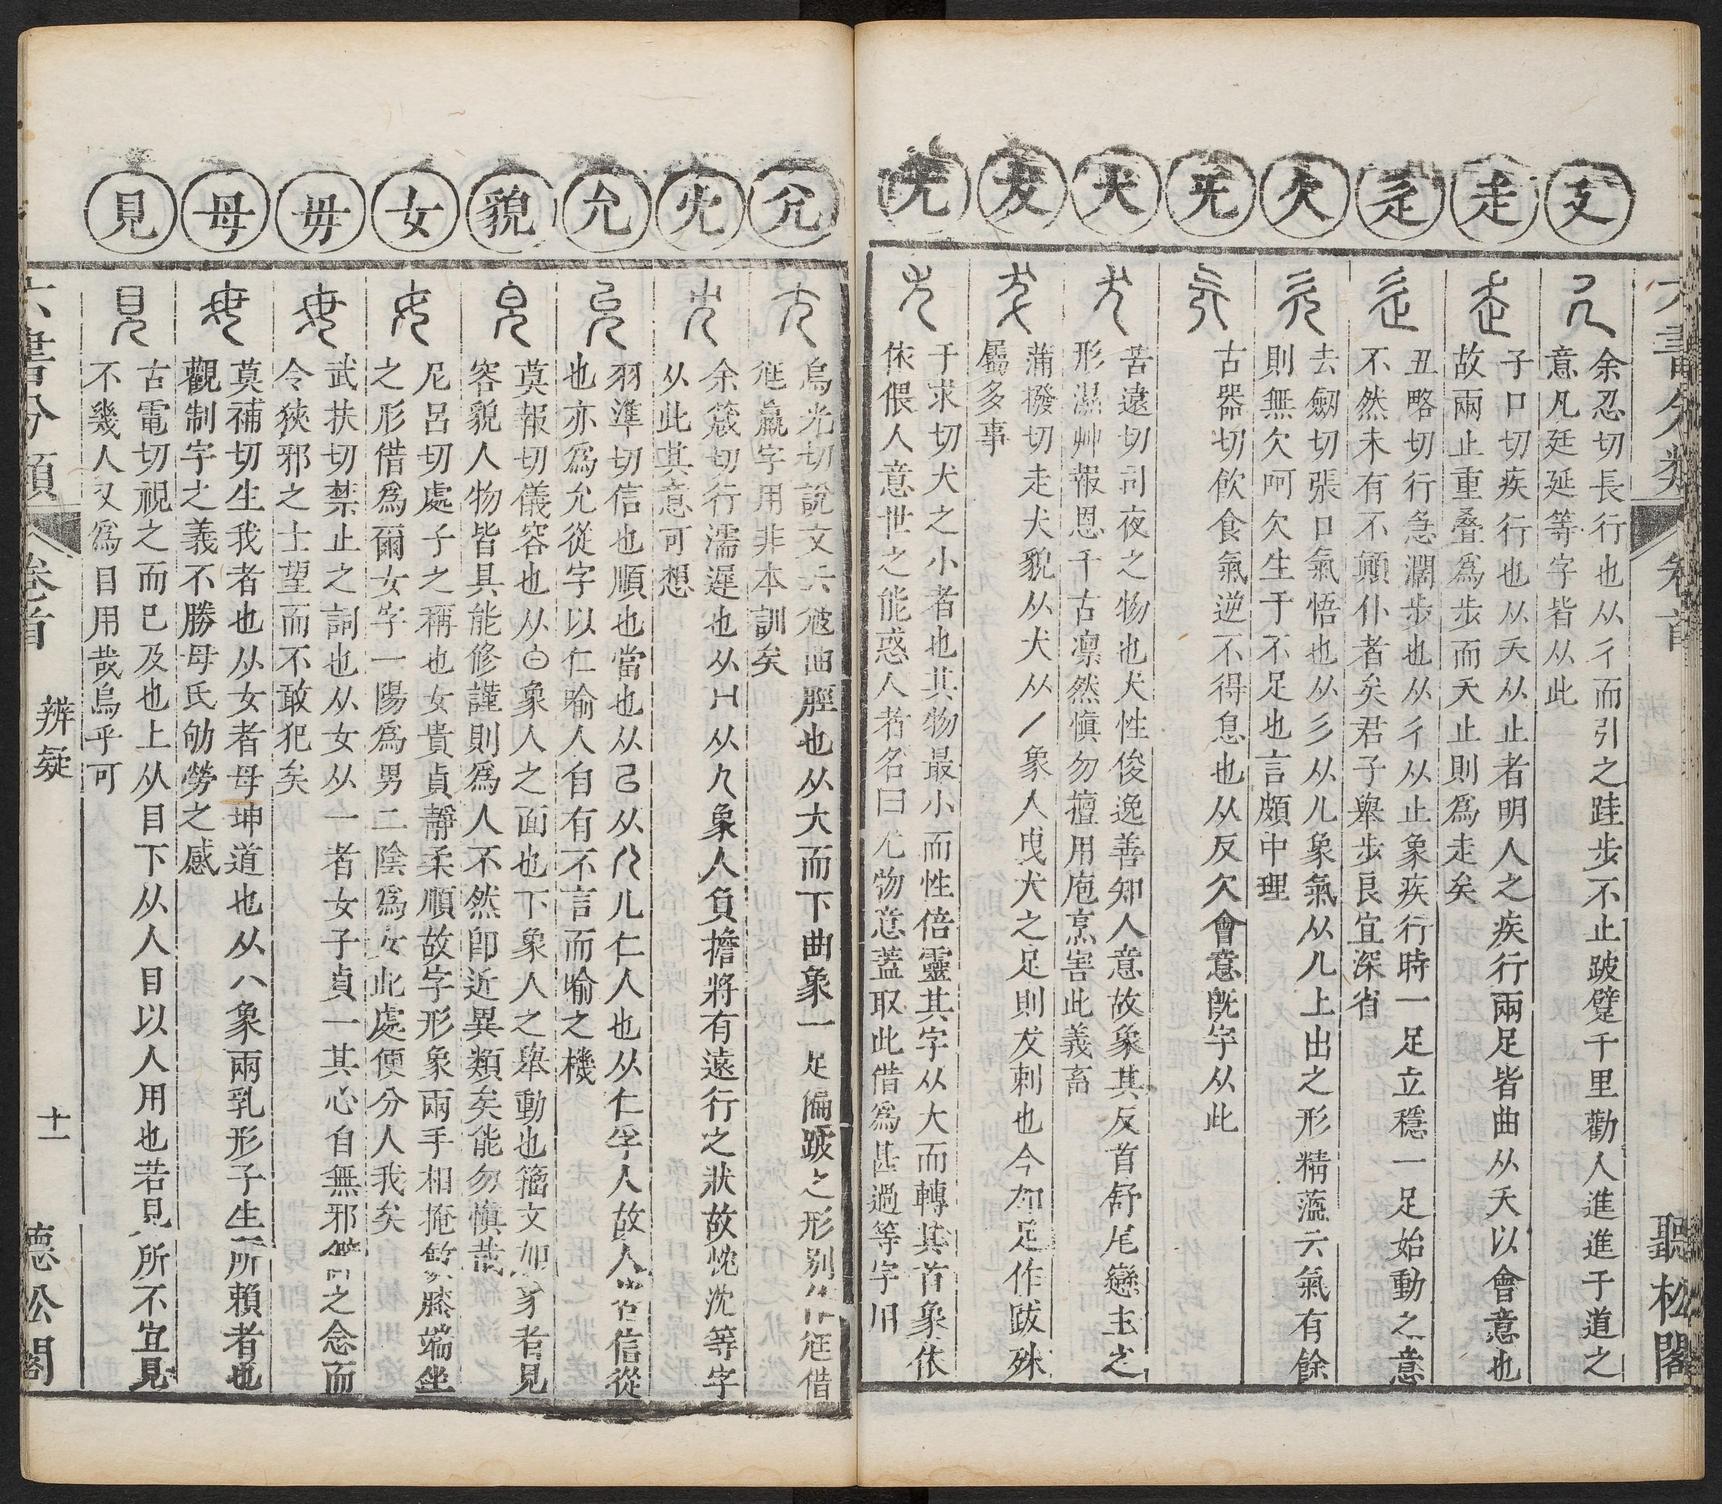 六書分類
卷首
聽松閣
廴
余忍切長行也从彳而引之跬步不止跛躄千里勸人進進于道之
意凡廷延等字皆从此
走
子口切疾行也从夭从止者明人之疾行兩足皆曲从夭以會意也
故兩止重叠爲步而夭止則爲走矣
辵
丑略切行急濶步也从彳从止象疾行時一足立穩一足始動之意
不然未有不顛仆者矣君子舉步艮宜深省
欠
去劒切張口氣悟也从彡从儿象氣从儿上出之形精薀云氣有餘
則無欠呵欠生于不足也言頗中理
旡
古器切飲食氣逆不得息也从反欠會意旣字从此
犬
苦遠切司夜之物也犬性俊逸善知人意故象其反首舒尾戀主之
形濕艸報恩千古凛然愼勿擅用庖烹害此義畜
犮
蒲撥切走犬貌从犬从丿象人曳犬之足則犮刺也今加足作跋殊
屬多事
尤
于求切犬之小者也其物最小而性倍靈其字从大而轉其首象依
依偎人意世之能惑人者名曰尤物意蓋取此借爲甚過等字用
尣
烏光切說文云㝿曲脛也从大而下曲象一足偏跛之形别作尫借
尫羸字用非本訓矣
冘
余箴切行濡遲也从H从九象人負擔將有遠行之狀故忱沈等字
从此其意可想
允
羽準切信也順也當也从㠯从儿仁人也从仁孚人故人信從
也亦爲允從字以仁喻人自有不言而喻之機
貌
莫報切儀容也从白象人之面也下象人之舉動也籀文加豸者見
容貌人物皆具能修謹則爲人不然卽近異類矣能勿愼哉
女
尼呂切處子之稱也女貴貞靜柔順故字形象兩手相掩斂膝端坐
之形借爲爾女字一陽爲男二陰爲女此處便分人我矣
毋
武扶切禁止之詞也从女从一者女子貞一其心自無邪之念而
令狹邪之士望而不敢犯矣
母
莫補切生我者也从女者母坤道也从八象兩乳形子生所賴者也
觀制字之義不勝母氏劬勞之感
見
古電切視之而巳及也上从目下从人目以人用也若見所不宜見
不幾人又爲目用哉烏乎可
六書分類
卷首
辨疑
十一
聽松閣